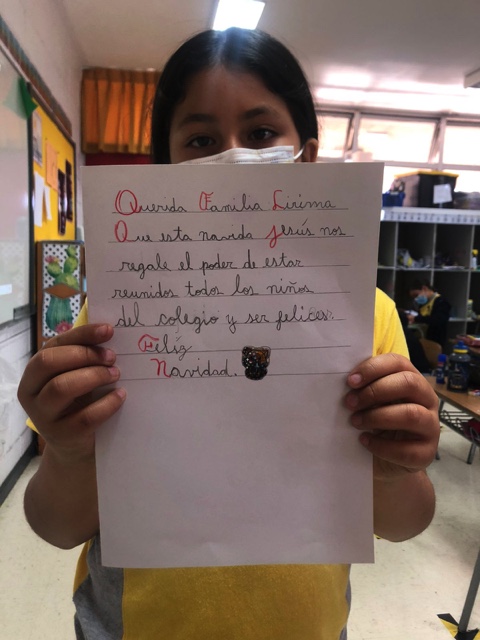 Querida Familia Lirima
Que esta navida Jesús nos
regale el poder de estar
reunidos todos los niños
del colegio y ser felices.
Feliz
Navidad.